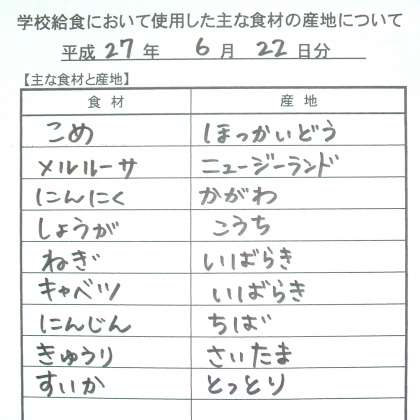 学校給食において使用した主な食材の産地について
平成 27 年 6 月 22 日分
【主な食材と産地】
食材 産地
こめ ほっかいどう
メルルーサ ニュージーランド
にんにく かがわ
しょうが こうち
ねぎ いばらき
キャベツ いばらき
にんじん ちば
きゅうり さいたま
すいか とっとり